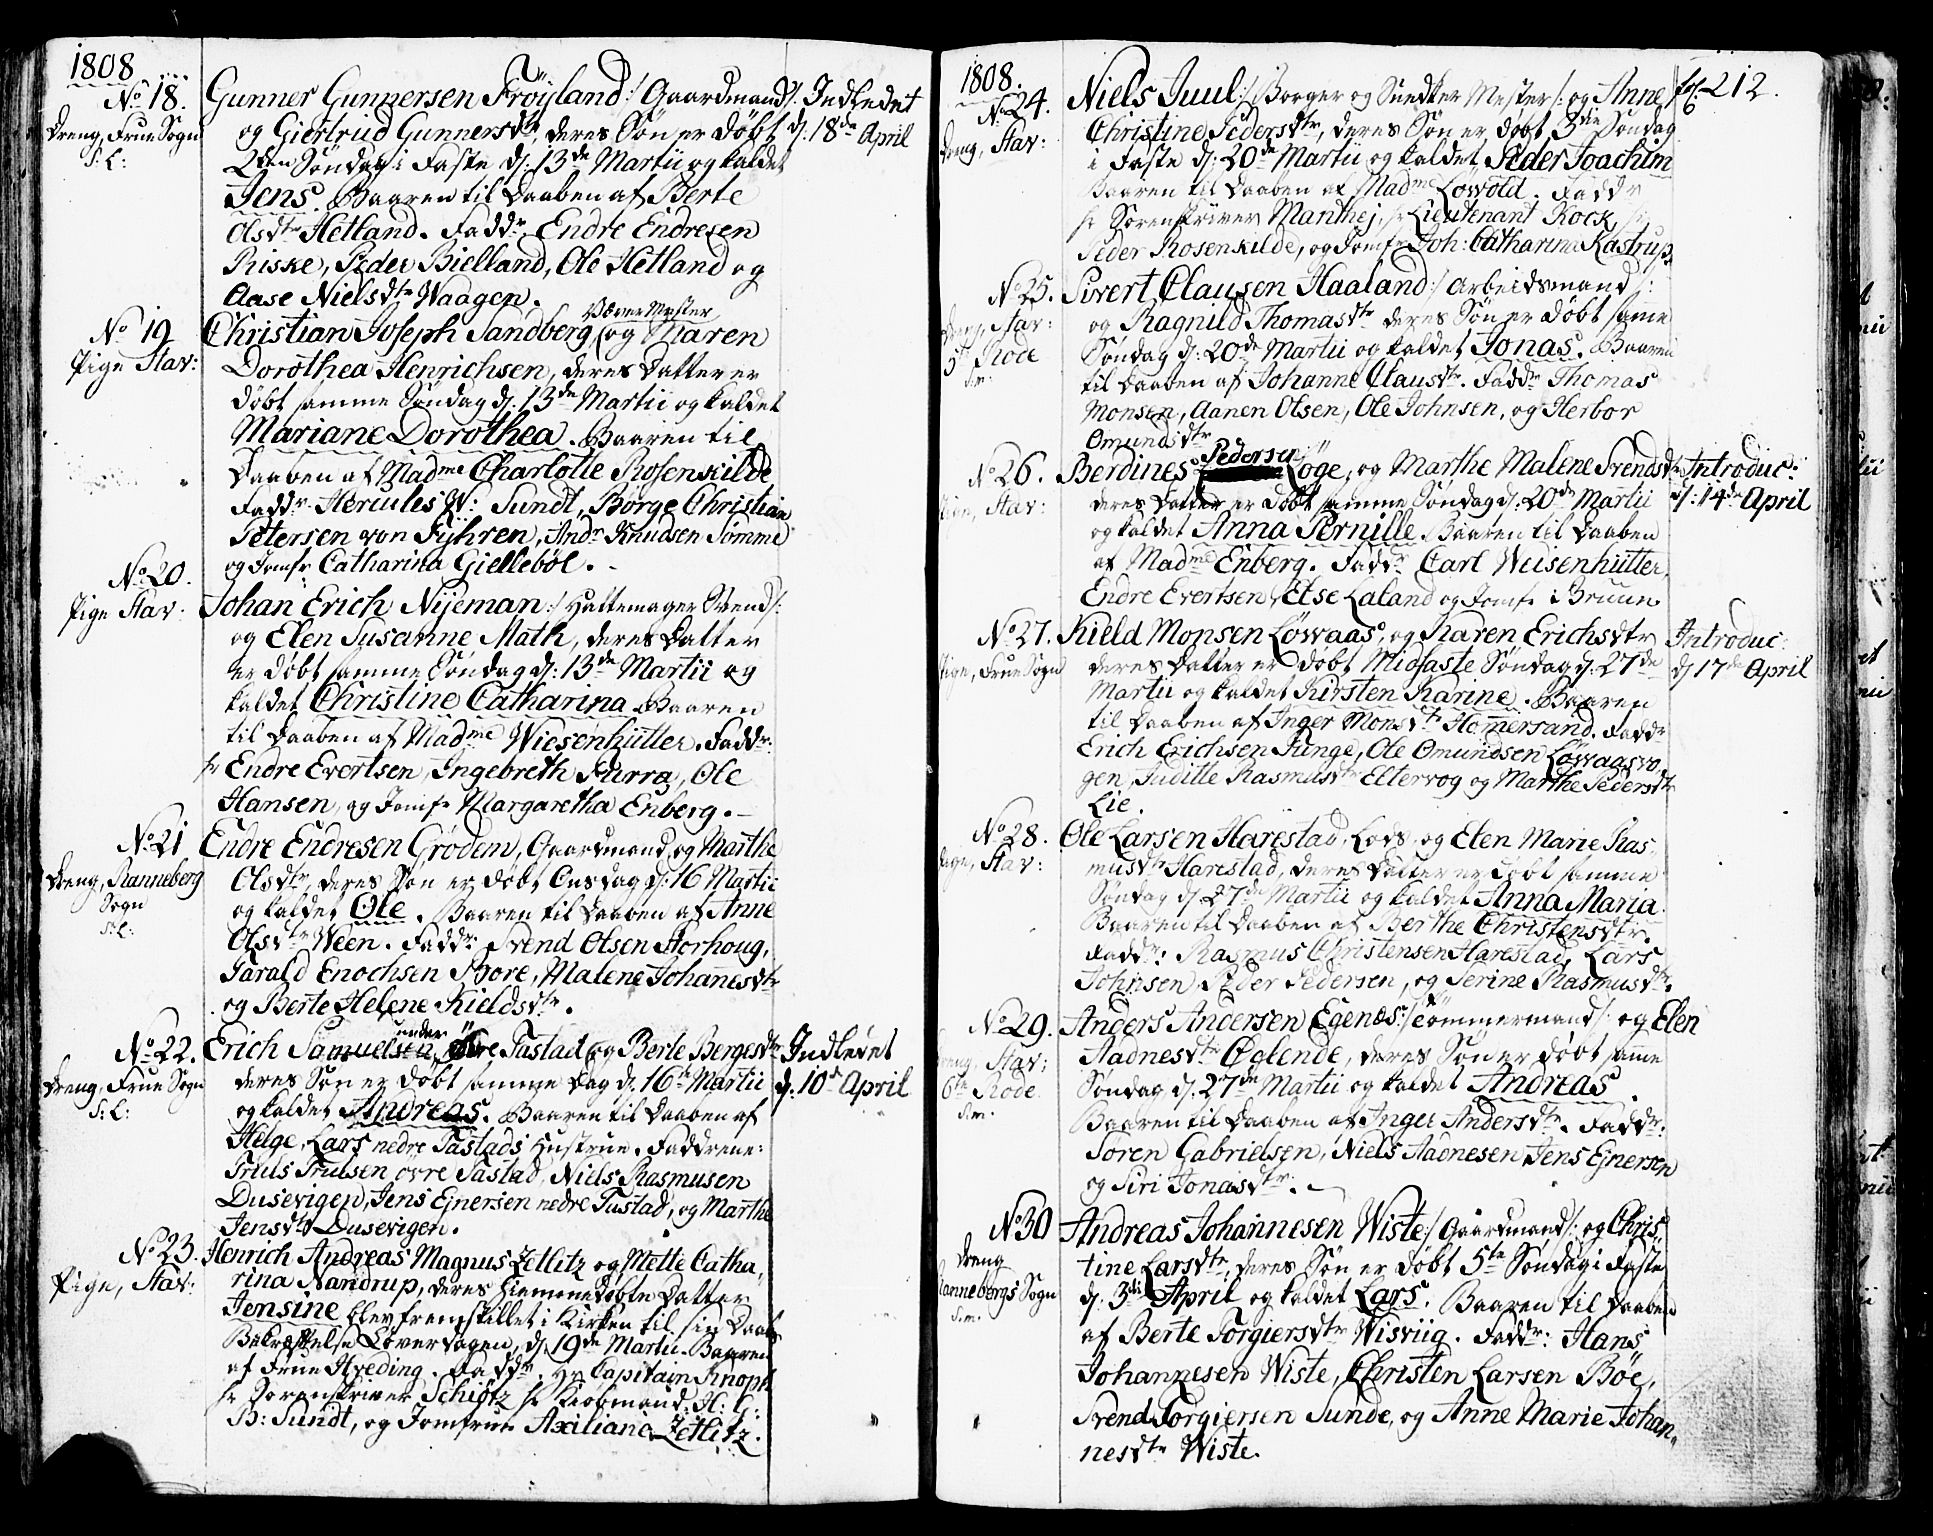 1808
No 18.
Dreng, Frue Sogn
S: L:
Gunner Gunnersen Fröÿland :/ Gaardmand /:
og Giertrud Gunnersdtr, deres Søn er døbt
2den Søndag i Faste d: 13de Martii og kaldet
Jens. Baaren til Daaben af Berte
Olsdtr Hetland. Faddr Endre Endresen
Riske, Peder Bielland, Ole Hetland og
Aase Nielsdtr Waagen.
Indledet
d: 18de April
No 19
Pige Stav:
Væver Mester
Christian Joseph Sandberg og Maren
Dorothea Henrichsen, deres Datter er
døbt samme Søndag d: 13de Martii og kaldet
Mariane Dorothea. Baaren til
Daaben af Madme Charlotte Rosenkilde
Faddr Hercules W: Sundt, Børge Christian
Petersen von Fÿhren, Andr Knudsen Sømme
og Jomfr Catharina Giellebøl.
No 20.
Pige Stav:
Johan Erich Nÿeman :/ Hattemager Svend /:
og Elen Susanne Math, deres Datter
er døbt samme Søndag d: 13de Martii og
kaldet Christine Catharina Baaren
til Daaben af Madme Wiesenhütter. Faddr:
hr Endre Evertsen, Ingebreth Furra, Ole
Hansen, og Jomfr Margaretha Enberg.
No 21
Dreng, Ranneberg
Sogn
S: L:
Endre Endresen Grødem, Gaardmand, og Marthe
Olsdtr, deres Søn er døbt Onsdag d: 16 Martii
og kaldet Ole. Baaren til Daaben af Anne
Olsdtr Ween. Faddr: Svend Olsen Storhoug,
Tarald Enochsen Bore, Malene Johannesdtr
og Berte Helene Kieldsdtr.
No 22.
Dreng, Frue Sogn
S: L:
under
Erich Samuelsen, Øvre Tastad og Berte Bergesdtr
deres Søn er døbt samme Dag d: 16de Martii
og kaldet Andreas. Baaren til Daaben af
Helge, Lars nedre Tastads Hustrue. Faddrene:
Truls Trulsen øvre Tastad, Niels Rasmusen
Dusevigen, Jens Ejnersen nedre Tastad, og Marthe
Jensdtr Dusevigen.
Indledet
d: 10de April
No 23.
Pige, Stav:
Henrich Andreas Magnus Zetlitz og Mette Catha,
rina Nandrup, deres hiemmedøbte Datter
Jensine blev fremstillet i Kirken til sin Daabs
Bekræftelse Løverdagen, d: 19de Martii. Baaren
af Frue Hveding. Faddr. hr Capitain Knoph
hr Sorenskriver Schiøtz hr Kiøbmand: H: G:
B: Sundt, og Jomfrue Axiliane Zetlitz.
1808.
fol: 212.
No 24.
Dreng, Stav:
Niels Juul :/ Borger og Snedker Mester /: og Anne
Christine Pedersdtr, deres Søn er døbt 3die Søndag
i Faste d: 20de Martii og kaldet Peder Joachim
Baaren til Daaben af Madme Løwold. Faddr
hr Sorenskriver Manthej, hr Lieutenant Kock, hr
Peder Rosenkilde, og Jomfr Joh: Catharina Kastrup.
No 25.
Dreng, Stav:
5te Rode
S.m.
Sivert Clausen Haaland :/ Arbeidsmand /:
og Ragnild Thomasdtr deres Søn er døbt samme
Søndag d: 20de Martii og kaldet Jonas. Baaren
til Daaben af Johanne Clausdtr. Faddr Thomas
Monsen, Aanen Olsen, Ole Johnsen, og Herbor
Omundsdtr
No 26.
Pige, Stav:
Pedersen
Berdines Løge, og Marthe Malene Svendsdtr
deres Datter er døbt samme Søndag d: 20de Martii
og kaldet Anna Pernille Baaren til Daaben
af Madme Enberg. Faddr Carl Weisenhütter,
Endre Evertsen, Else Laland og Jomfr Bruun.
Introduc:
d: 14de April
No 27.
Pige, Frue Sogn
Kield Monsen Løwaas, og Karen Erichsdtr
deres Datter er døbt Midfaste Søndag d: 27de
Martii og kaldet Kirsten Karine. Baaren
til Daaben af Inger Monsdtr Hommersand. Faddr
Erich Erichsen Tunge, Ole Omundsen Løwaasvo,
gen, Juditte Rasmusdtr Eltervog og Marthe Pedersdtr
Lie.
Introduc:
d: 17de April
No 28.
Pige, Stav:
Ole Larsen Harestad, Lods, og Elen Marie Ras,
musdtr Harestad, deres Datter er døbt samme
Søndag d: 27de Martii og kaldet Anna Maria.
Baaren til Daaben af Berthe Christensdtr.
Faddr: Rasmus Christensen Harestad, Lars
Johnsen, Peder Pedersen, og Serine Rasmusdtr.
No 29.
Dreng, Stav:
6te Rode
S.m.
Anders Andersen Egenæs :/ Tømmermand /: og Elen
Aadnesdtr Øglende, deres Søn er døbt samme
Søndag d: 27de Martii og kaldet Andreas.
Baaren til Daaben af Inger Andersdtr. Faddr:
Søren Gabrielsen, Niels Aadnesen, Jens Ejnersen
og Siri Jonasdtr.
No 30
Dreng
Rannebergs Sogn
S.m.
Andreas Johannesen Wiste :/ Gaardmand /: og Chris,
tine Larsdtr, deres Søn er døbt 5te Søndag i Faste
d: 3die April og kaldet Lars. Baaren til Daaben
af Berte Torgiersdtr Wisviig. Faddr: Hans
Johannesen Wiste, Christen Larsen Bøe,
Svend Torgiersen Sunde, og Anne Marie Johan,
nesdtr Wiste.